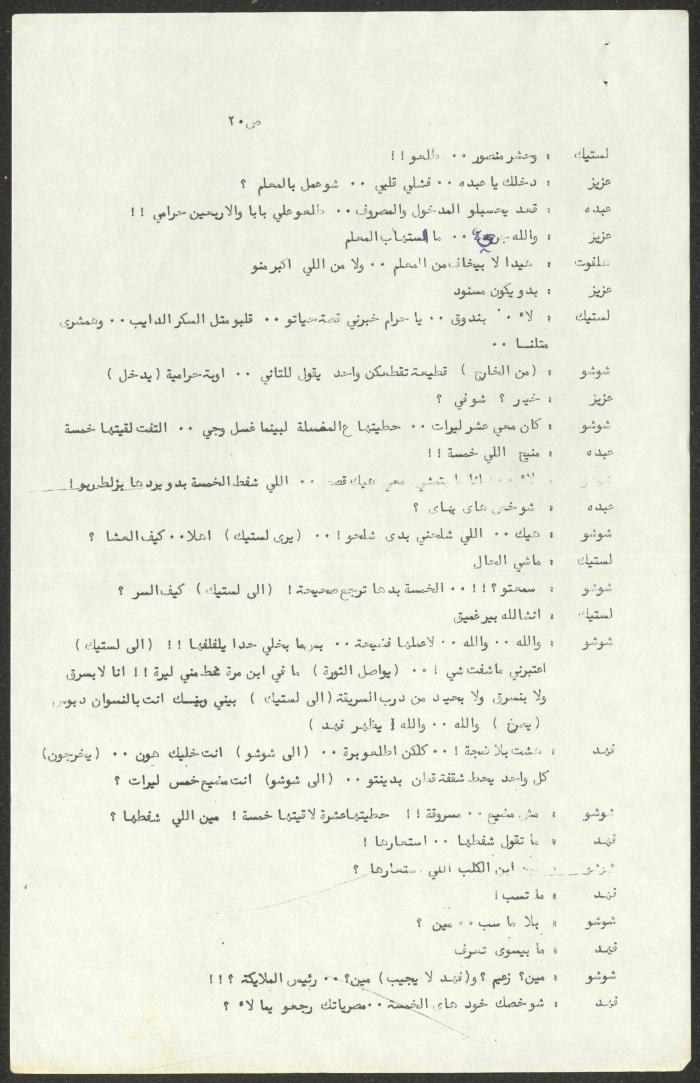 ص ٢٠
لستيك : وعشر منصور ٠٠ طلعو !!
عزيز : دخلك يا عبده ٠٠ فشلي قلبي ٠٠ شو عمل بالمعلم ؟
عبده : قعد يحسبلو المدخول والمصروف ٠٠ طلعو علي بابا والاربعين حرامي !!
عزيز : والله ٠٠ ما استهاب المعلم
هلفوت : هيدا لا بيخاف من المعلم ٠٠ ولا من اللي اكبر منو
عزيز : بدو يكون مسنود
لستيك : لاء ٠٠ بندوق ٠٠ يا حرام خبرني قصة حياتو ٠٠ قلبو متل السكر الدايب ٠٠ وهمشرى
متلنا ٠٠
شوشو : (من الخارج ) قطيعة تقطعكن واحد يقول للتاني ٠٠ اوبة حرامية ( يدخل )
عزيز : خير ؟ شو في ؟
شوشو : كان معي عشر ليرات ٠٠ حطيتها ع المغسلة لبينما غسل وجي ٠٠ التفت لقيتها خمسة
عبده : منيح اللي خمسة !!
شوشو : لاء ٠٠ انا ما بتمشي معي هيك قصص ٠٠ اللي شفط الخمسة بدو يردها بزلطريو !
عبده : شو خص هاي بهاي ؟
شوشو : هيك ٠٠ اللي شلحني بدى شلحو ! ٠٠ (يرى لستيك ) اهلا ٠٠ كيف العشا ؟
لستيك : ماشي الحال
شوشو : سمعتو ؟ !! ٠٠ الخمسة بدها ترجع صحيحة ! (الى لستيك ) كيف السر ؟
لستيك : انشالله بير غميق
شوشو : والله ٠٠ والله ٠٠ لاعملها فضيحة ٠٠ بس ما بخلي حدا يلفلفها !! (الى لستيك )
اعتبرني ما شفت شي ! ٠٠ (يواصل الثورة ) ما في ابن مرة بحط مني ليرة !! انا لا بسرق
ولا بنسرق ولا بحيد من درب السريقة (الى لستيك ) بيني وبينك انت بالنسوان دبوس
( يصرخ ) والله ٠٠ والله ( يظهر فهد )
فهد : هشت بلا نمجة ! ٠٠ كلكن اطلعو برة ٠٠ (الى شوشو ) انت خليك هون ٠٠ (يخرجون)
كل واحد يحط شقفة قطن بدينتو ٠٠ (الى شوشو) انت مضيع خمس ليرات ؟
شوشو : مش مضيع ٠٠ مسروقة !! حطيتها عشرة لاقيتها خمسة ! مين اللي شفطها ؟
فهد : ما تقول شفطها ٠٠ استعارها !
شوشو : مين ابن الكلب اللي استعارها ؟
فهد : ما تسب !
شوشو : بلا ما سب ٠٠ مين ؟
فهد : ما بيسوى تعرف
شوشو : مين؟ زعيم ؟ و(فهد لا يجيب ) مين؟ ٠٠ رئيس الملايكة ؟ !!
فهد : شو خصك خود هاى الخمسة ٠٠ مصرياتك رجعو يما لاء ؟